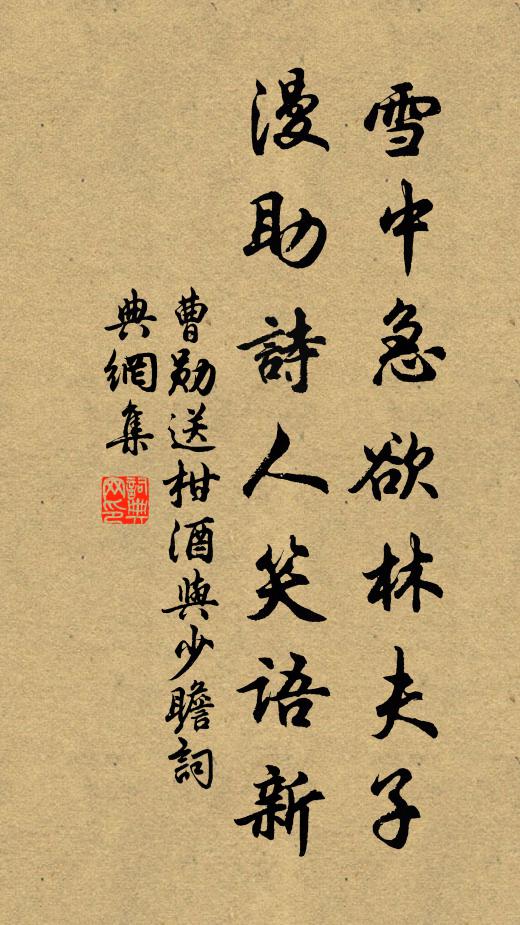 雪中急欲林夫子
漫助詩人笑語新
曹勛送柑酒與少瞻詞
典網集
詞典網印